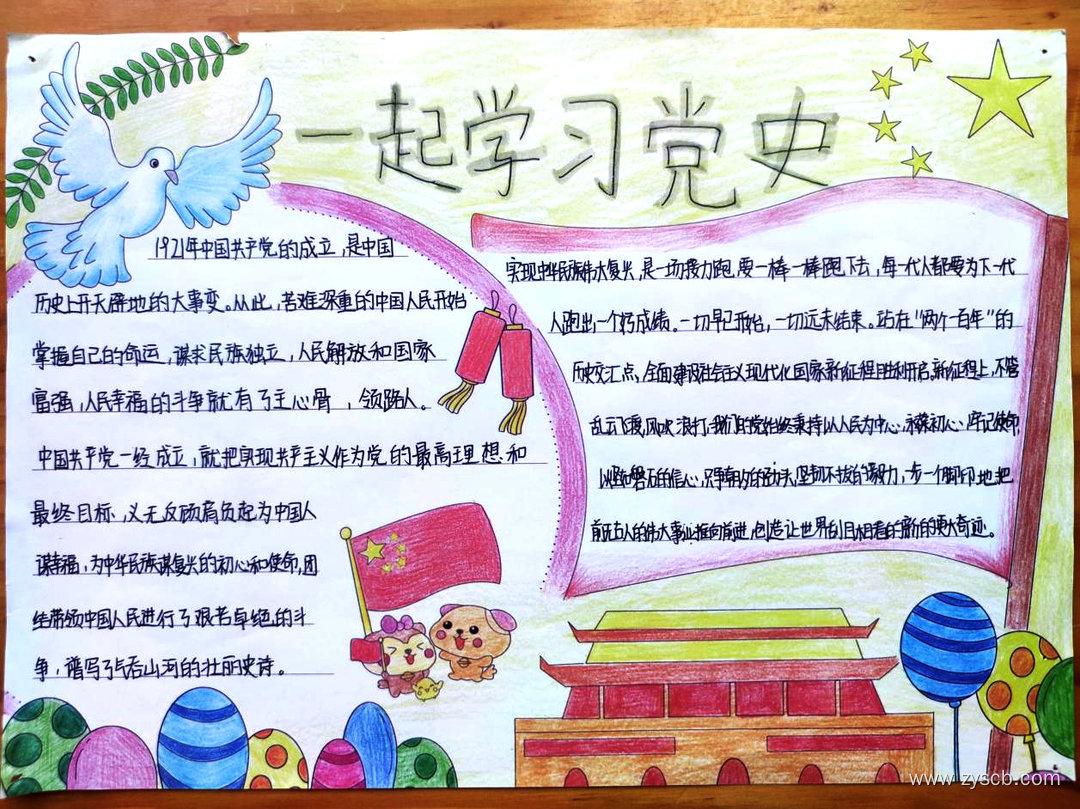 一起学习党史
1921年中国共产党的成立，是中国
历史上开天辟地的大事变。从此，苦难深重的中国人民开始
掌握自己的命运，谋求民族独立，人民解放和国家
富强，人民幸福的斗争就有了主心骨，领路人。
中国共产党一经成立，就把实现共产主义作为党的最高理想和
最终目标，义无反顾肩负起为中国人
谋幸福，为中华民族谋复兴的初心和使命，团
结带领中国人民进行了艰苦卓绝的斗
争，谱写了气吞山河的壮丽史诗。
实现中华民族伟大复兴，是一场接力跑，要一棒一棒跑下去，每一代人都要为下一代
人跑出一个好成绩。一切早已开始，一切远未结束。站在"两个百年"的
历史交汇点，全面建设社会主义现代化国家新征程胜利开启。新征程上，不管
乱云飞渡，风吹浪打，我们的党始终秉持以人民为中心，永葆初心、牢记使命
以坚如磐石的信心，只争朝夕的劲头，坚韧不拔的毅力，一步一个脚印地把
前无古人的伟大事业推向前进，创造让世界刮目相看的新的更大奇迹。
www.zyscb.com